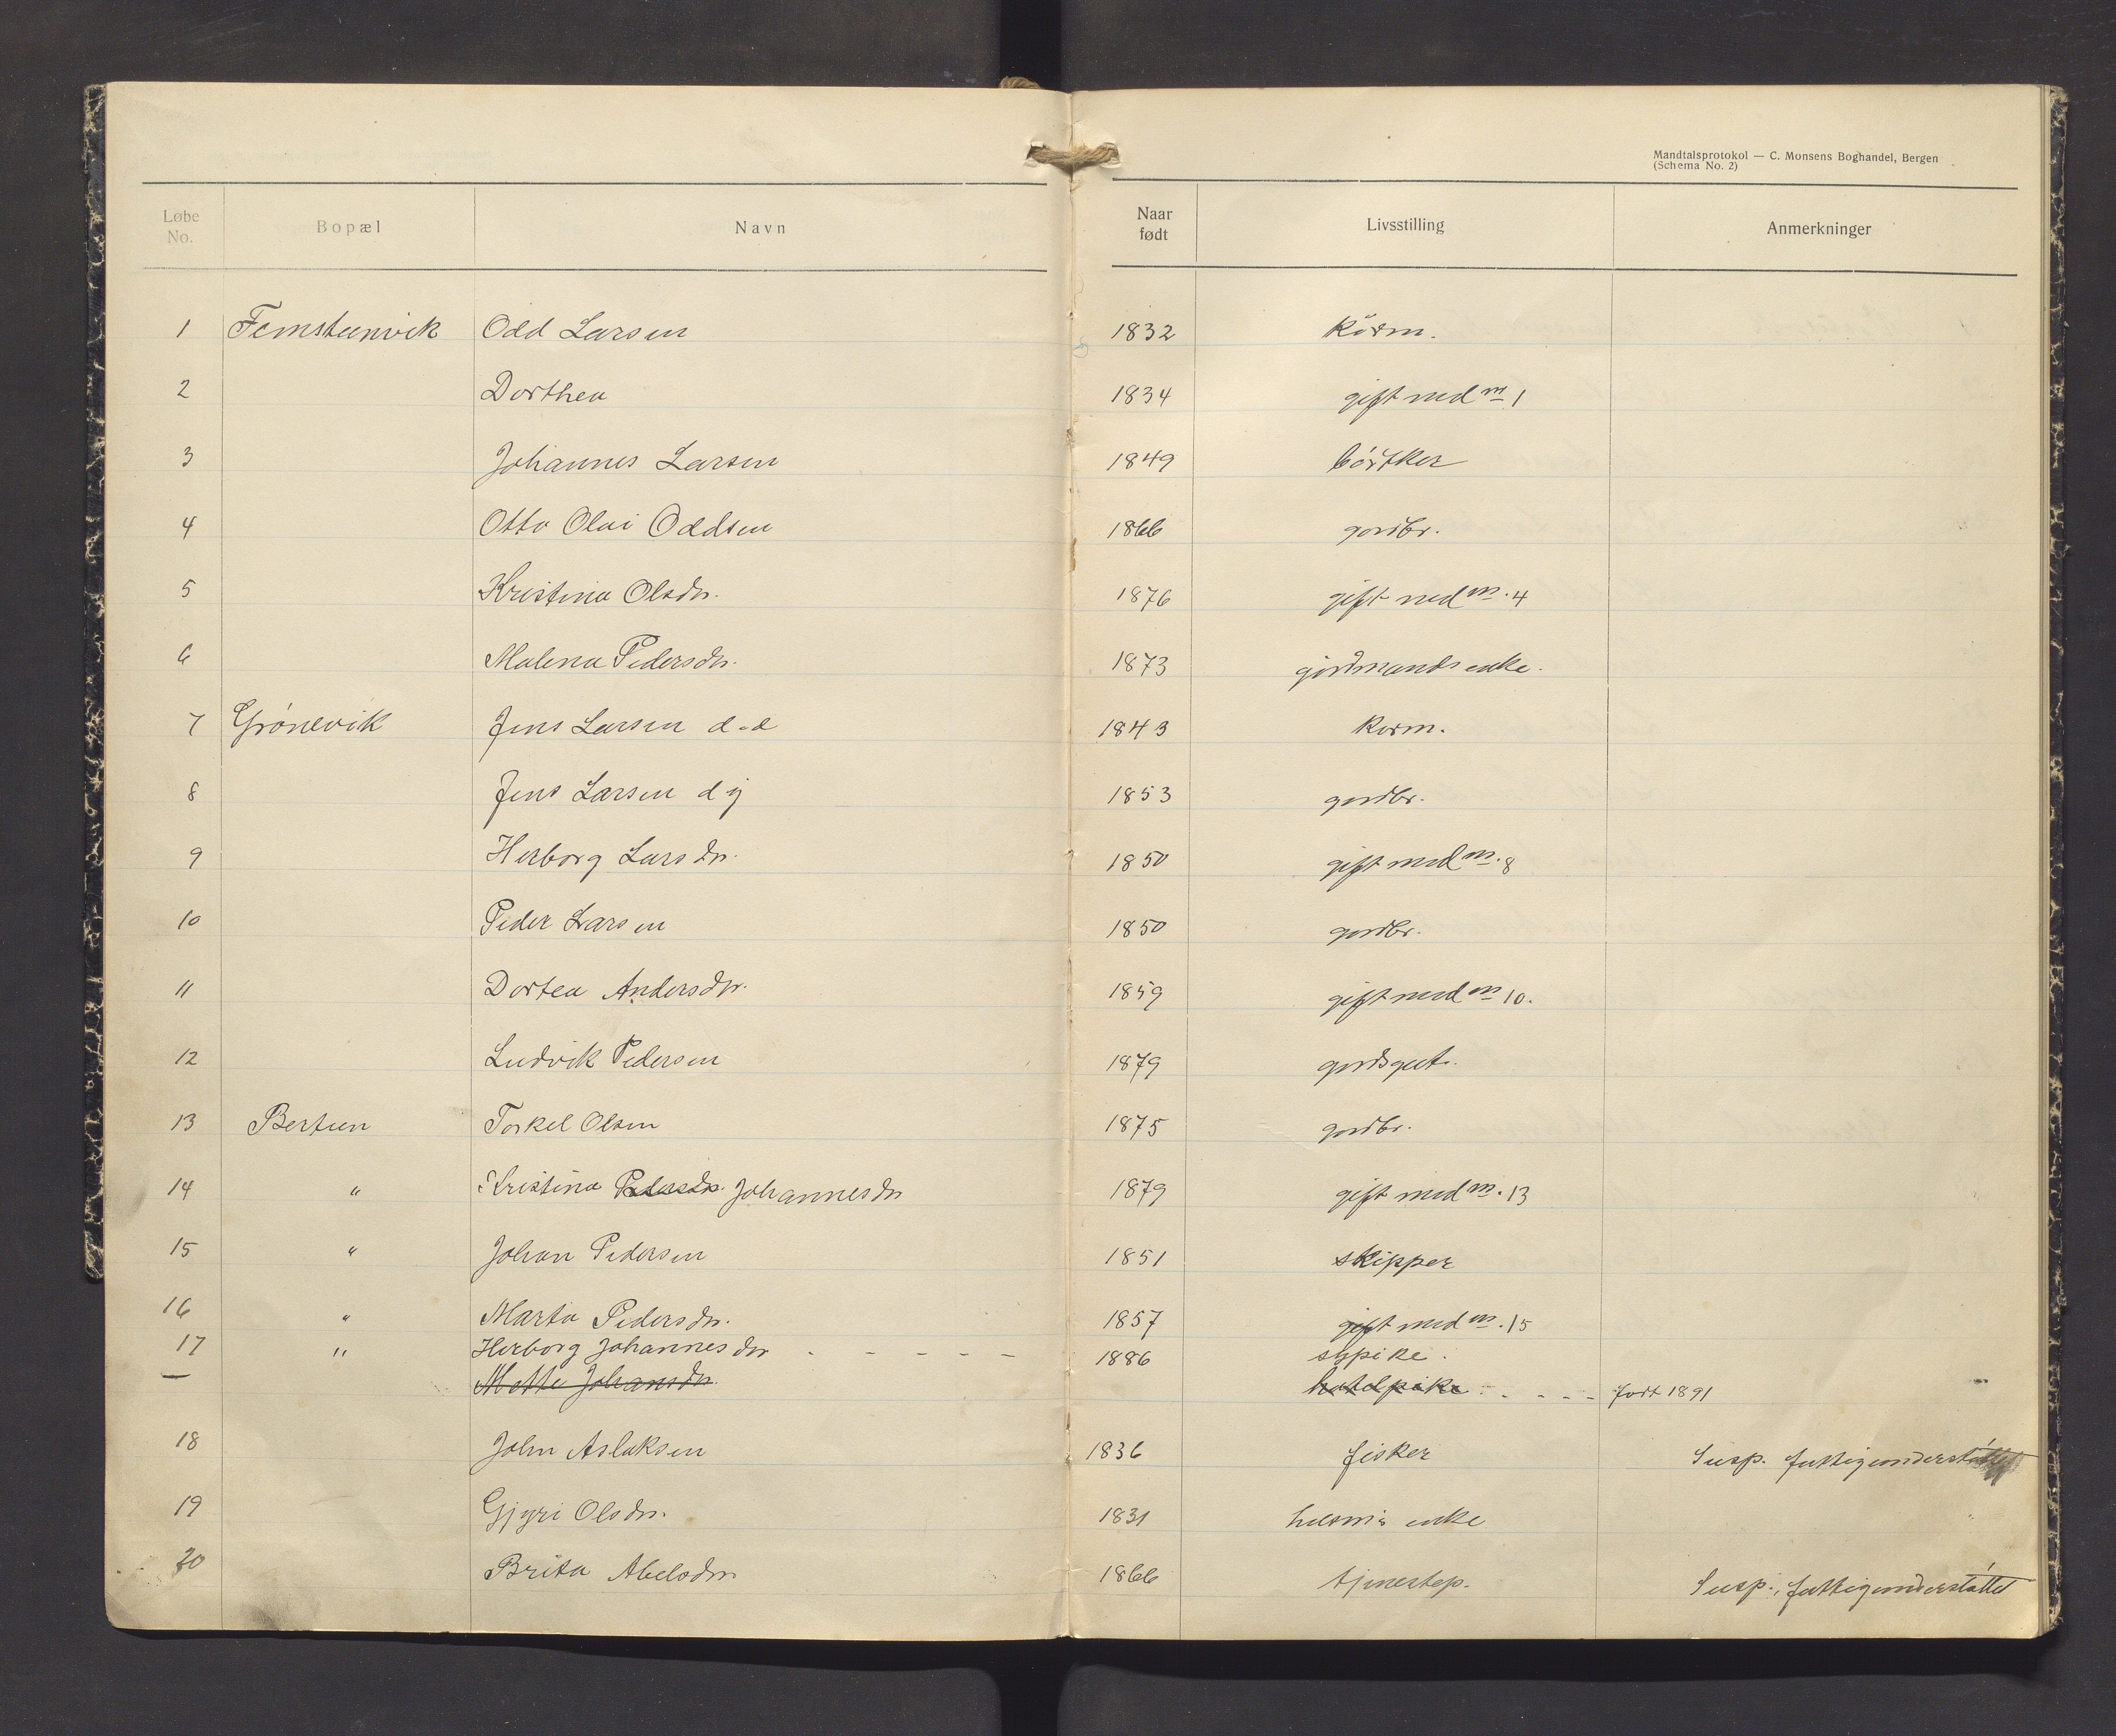 Mandtalsprotokol — C. Monsens Boghandel, Bergen
(Schema No. 2)
Løbe No. Bopæl Navn Naar født Livsstilling Anmerkninger
1 Femsteinvik Odd Larsen 1832 kårm.
2 Dorthea 1834 gift med no 1
3 Johannes Larsen 1849 bøtker
4 Otto Olai Oddsen 1866 gardbr.
5 Kristina Olsdr. 1876 gift med no. 4
6 Malena Pedersdr. 1873 gardmands enke.
7 Grönevik Jens Larsen d.e 1843 karm.
8 Jens Larsen d y 1853 gardbr.
9 Herborg Larsdr. 1850 gift med no. 8
10 Peder Larsen 1850 gardbr.
11 Dortea Andersdr. 1859 gift med no 10.
12 Ludvik Pedersen 1879 gardsgut.
13 Bertun Torkel Olsen 1875 gardbr.
14 " Kristina Pedersdr. Johannesdr 1879 gift med no. 13
15 " Johan Pedersen 1851 skipper
16 " Marta Pedersdr. 1857 gift med no. 15
17 " Herborg Johannesdr - - - - - 1886 sypike.
— Mette Johansdr. hotelpike - - - - født 1891
18 John Aslaksen 1836 fisker Susp. fattigunderstøttet
19 Gjyri Olsdr. 1831 husm's enke
20 Brita Abelsdr. 1866 tjenestep. Susp., fattigunderstøttet